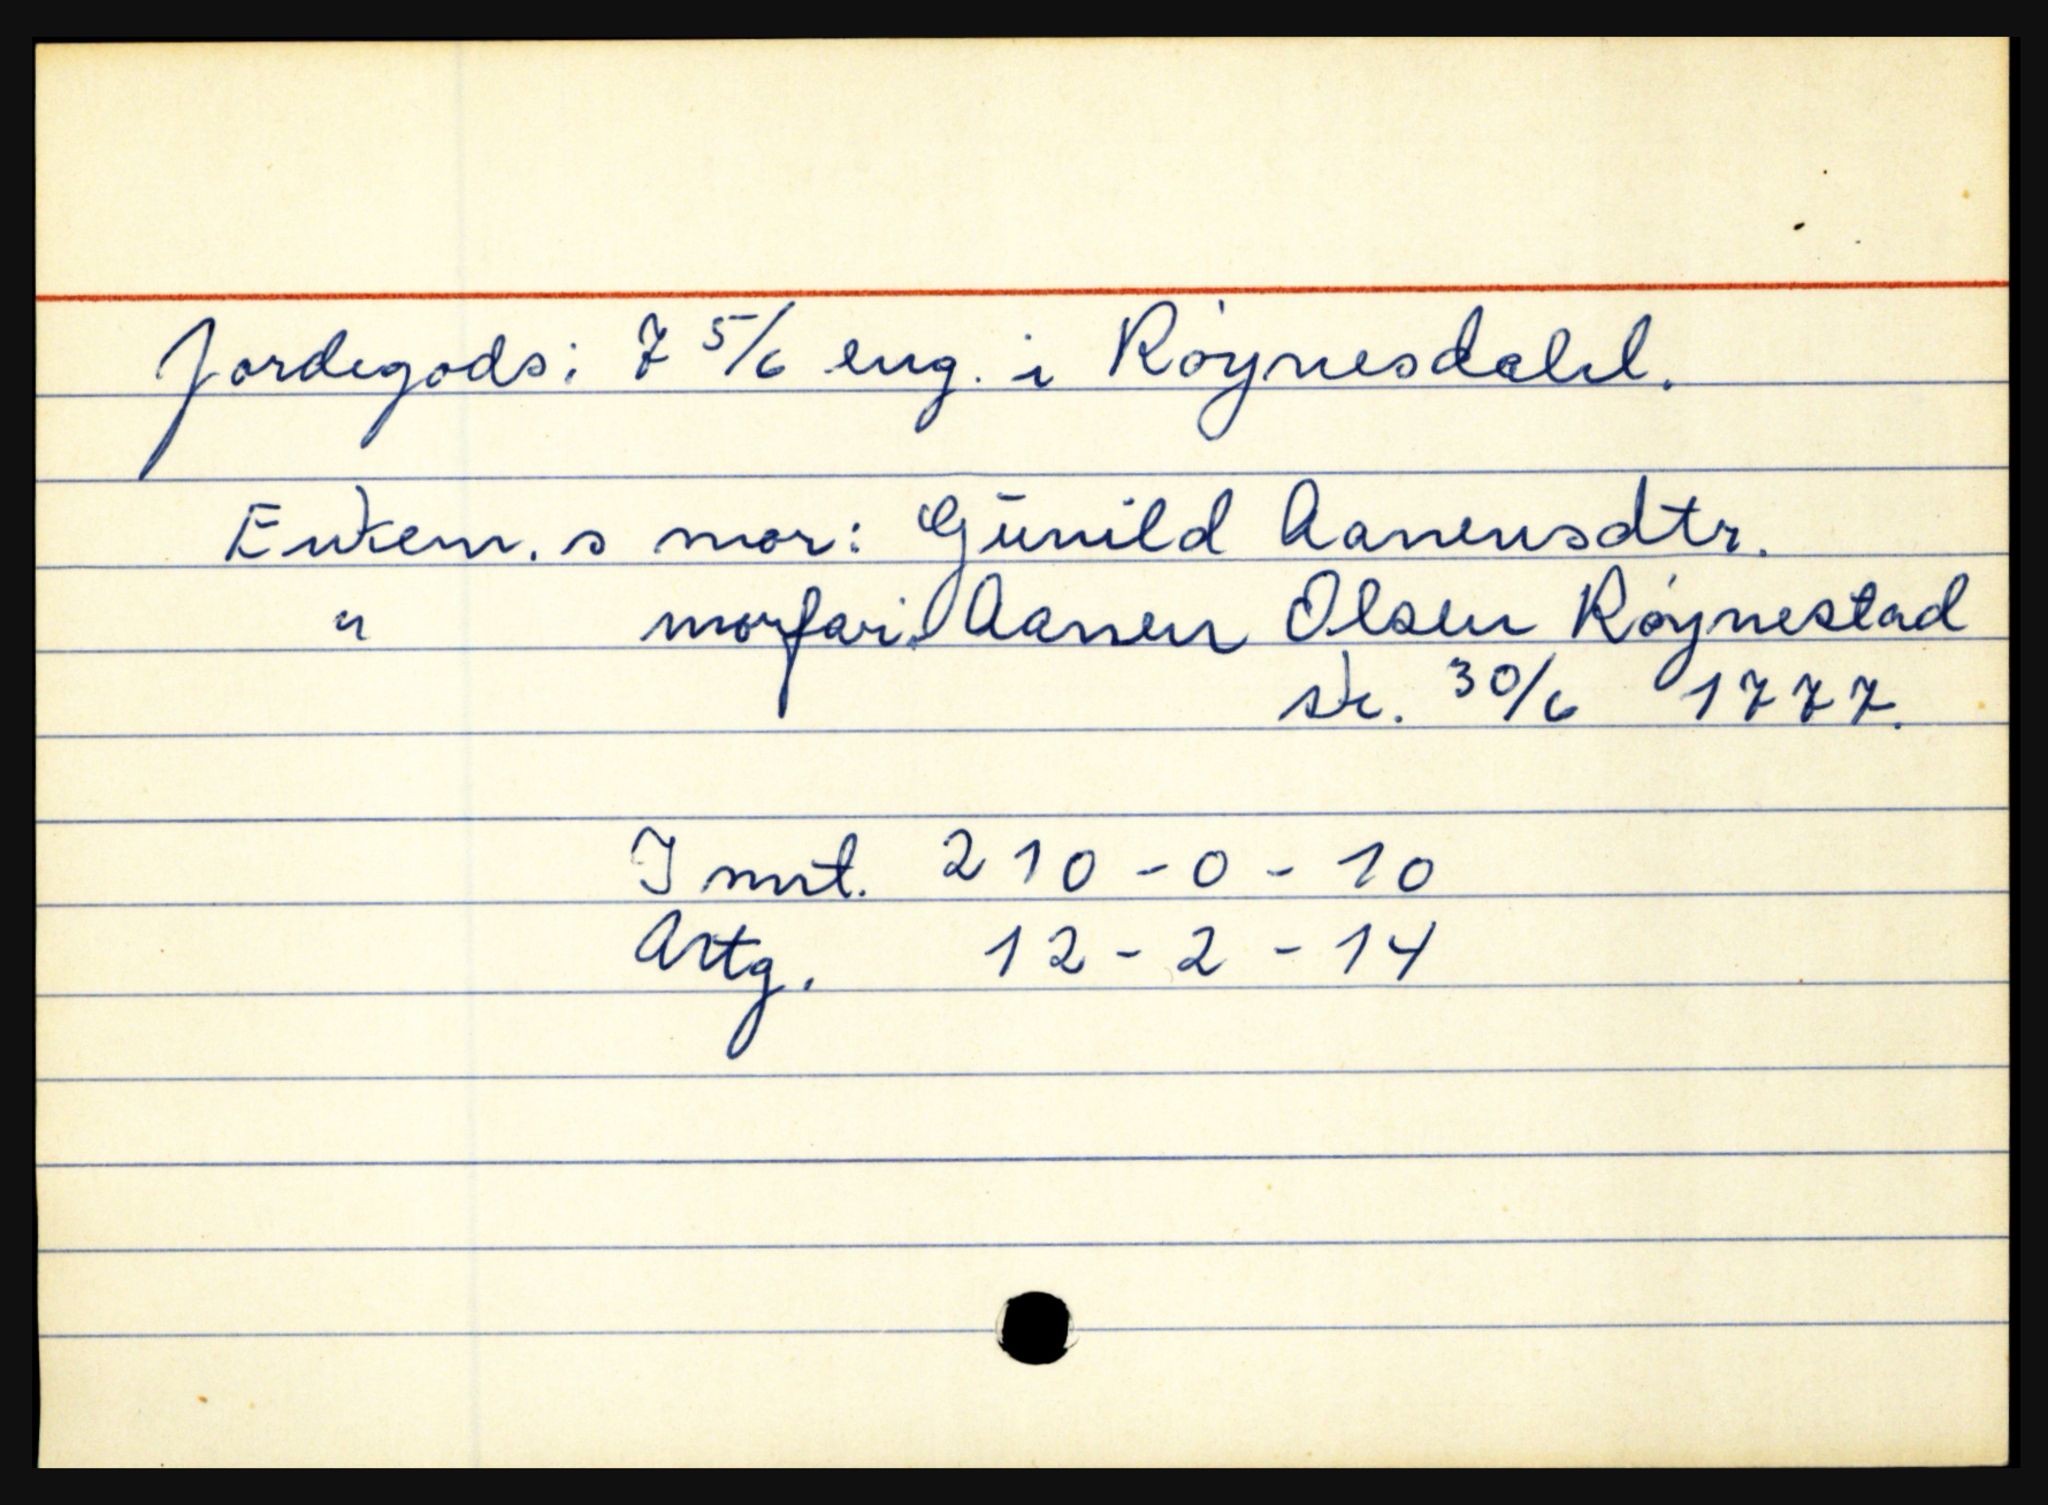 Jordegods: 7 5/6 eng. i Røynesdahl.
Enkem. s mor: Gūnild Aanensdtr.
" morfar: Aanen Olsen Røynestad
sk. 30/6 1777.
I nnt. 210 - 0 - 10
Artg. 12 - 2 - 14